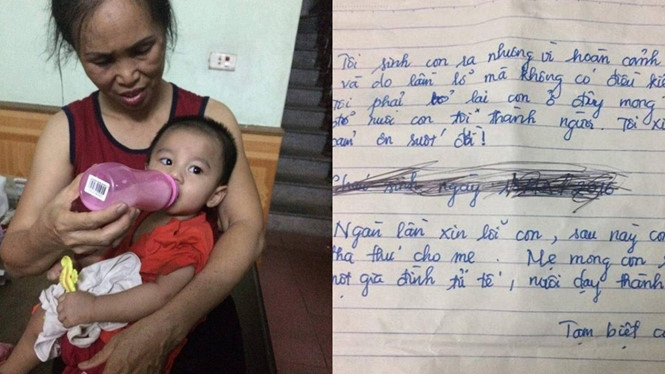 Tôi sinh con ra nhưng vì hoàn cảnh
và do lầm lỡ mà không có điều kiệ
Tôi phải bỏ lại con ở đây mong
nuôi con tôi thành người. Tôi xi
cảm ơn suốt đời!
sinh ngày 2016
Ngàn lần xin lỗi con, sau này co
tha thứ cho mẹ. Mẹ mong con
một gia đình tử tế, nuôi dạy thành
Tạm biệt co